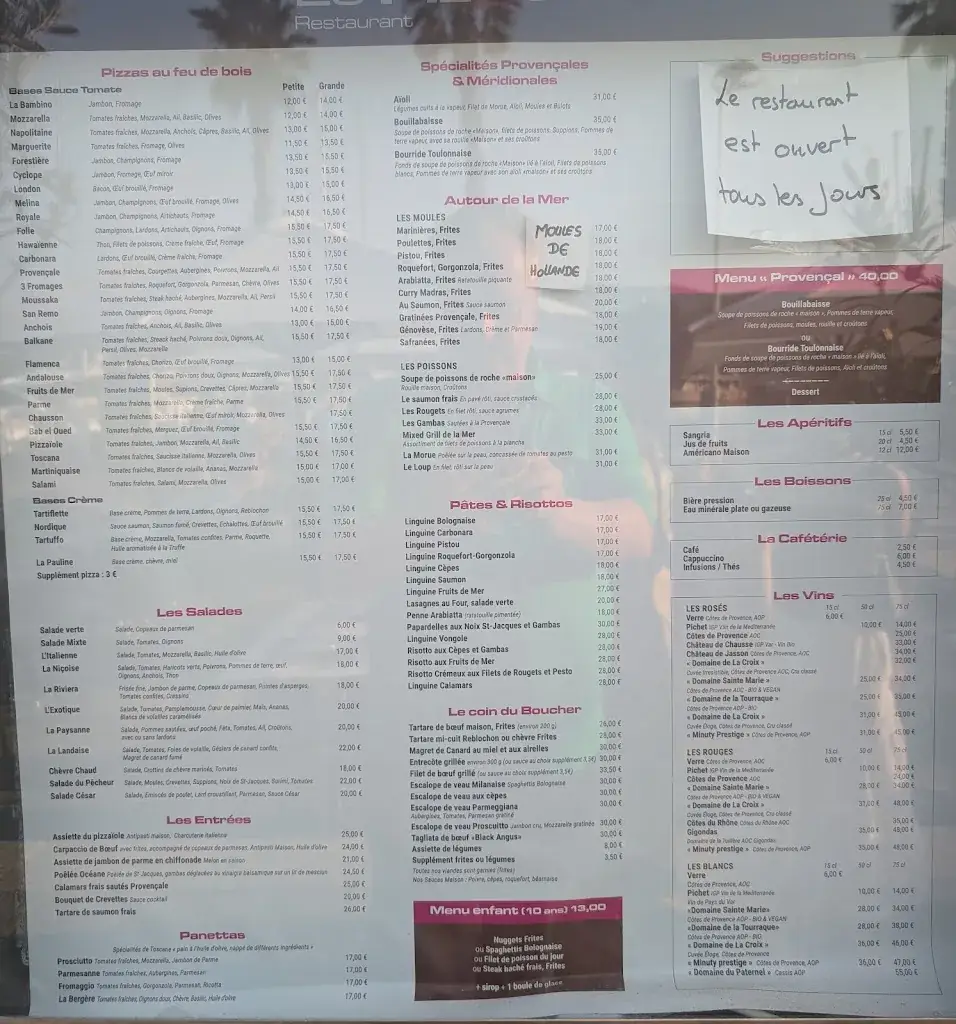 Restaurant
Pizzas au feu de bois
Bases Sauce Tomate Petite Grande
La Bambino Jambon, Fromage 12,00 € 14,00 €
Mozzarella Tomates fraîches, Mozzarella, Ail, Basilic, Olives 12,00 € 14,00 €
Napolitaine Tomates fraîches, Mozzarella, Anchois, Câpres, Basilic, Ail, Olives 13,00 € 15,00 €
Marguerite Tomates fraîches, Fromage, Olives 11,50 € 13,50 €
Forestière Jambon, Champignons, Fromage 13,50 € 15,50 €
Cyclope Jambon, Fromage, Œuf miroir 13,50 € 15,50 €
London Bacon, Œuf brouillé, Fromage 13,00 € 15,00 €
Melina Jambon, Champignons, Œuf brouillé, Fromage, Olives 14,50 € 16,50 €
Royale Jambon, Champignons, Artichauts, Fromage 14,50 € 16,50 €
Folle Champignons, Lardons, Artichauts, Oignons, Fromage 15,50 € 17,50 €
Hawaïenne Thon, Filets de poissons, Crème fraîche, Œuf, Fromage 15,50 € 17,50 €
Carbonara Lardons, Œuf brouillé, Crème fraîche, Fromage 15,50 € 17,50 €
Provençale Tomates fraîches, Courgettes, Aubergines, Poivrons, Mozzarella, Ail 15,50 € 17,50 €
3 Fromages Tomates fraîches, Roquefort, Gorgonzola, Parmesan, Chèvre, Olives 15,50 € 17,50 €
Moussaka Tomates fraîches, Steak haché, Aubergines, Mozzarella, Ail, Persil 15,50 € 17,50 €
San Remo Jambon, Champignons, Oignons, Fromage 14,00 € 16,50 €
Anchois Tomates fraîches, Anchois, Ail, Basilic, Olives 13,00 € 15,00 €
Balkane Tomates fraîches, Steack haché, Poivrons doux, Oignons, Ail, 15,50 € 17,50 €
Persil, Olives, Mozzarella
Flamenca Tomates fraîches, Chorizo, Œuf brouillé, Fromage 13,00 € 15,00 €
Andalouse Tomates fraîches, Chorizo, Poivrons doux, Oignons, Mozzarella, Olives 15,50 € 17,50 €
Fruits de Mer Tomates fraîches, Moules, Supions, Crevettes, Câpres, Mozzarella 15,50 € 17,50 €
Parme Tomates fraîches, Mozzarella, Crème fraîche, Parme 15,50 € 17,50 €
Chausson Tomates fraîches, Saucisse italienne, Œuf miroir, Mozzarella, Olives 17,50 €
Bab el Oued Tomates fraîches, Merguez, Œuf brouillé, Fromage 15,50 € 17,50 €
Pizzaïole Tomates fraîches, Jambon, Mozzarella, Ail, Basilic 14,50 € 16,50 €
Toscana Tomates fraîches, Saucisse italienne, Mozzarella, Olives 15,50 € 17,50 €
Martiniquaise Tomates fraîches, Blancs de volaille, Ananas, Mozzarella 15,00 € 17,00 €
Salami Tomates fraîches, Salami, Mozzarella, Olives 15,00 € 17,00 €
Bases Crème
Tartiflette Base crème, Pommes de terre, Lardons, Oignons, Reblochon 15,50 € 17,50 €
Nordique Sauce saumon, Saumon fumé, Crevettes, Echalottes, Œuf brouillé 15,50 € 17,50 €
Tartuffo Base crème, Mozzarella, Tomates confites, Parme, Roquette, 15,50 € 17,50 €
Huile aromatisée à la Truffe
La Pauline Base crème, chèvre, miel 15,50 € 17,50 €
Supplément pizza : 3 €
Les Salades
Salade verte Salade, Copeaux de parmesan 6,00 €
Salade Mixte Salade, Tomates, Oignons 9,00 €
L'Italienne Salade, Tomates, Mozzarella, Basilic, Huile d'olive 17,00 €
La Niçoise Salade, Tomates, Haricots verts, Poivrons, Pommes de terre, œuf, 18,00 €
Oignons, Anchois, Thon
La Riviera Frisée fine, Jambon de parme, Copeaux de parmesan, Pointes d'asperges, 18,00 €
Tomates confites, Gressins
L'Exotique Salade, Tomates, Pamplemousse, Cœur de palmier, Maïs, Ananas, 20,00 €
Blancs de volailles caramélisés
La Paysanne Salade, Pommes sautées, œuf poché, Féta, Tomates, Ail, Croûtons, 20,00 €
avec ou sans lardons
La Landaise Salade, Tomates, Foies de volaille, Gésiers de canard confits, 22,00 €
Magret de canard fumé
Chèvre Chaud Salade, Crottins de chèvre marinés, Tomates 18,00 €
Salade du Pêcheur Salade, Moules, Crevettes, Suppions, Noix de St-Jacques, Surimi, Tomates 22,00 €
Salade César Salade, Emincés de poulet, Lard croustillant, Parmesan, Sauce César 20,00 €
Les Entrées
Assiette du pizzaïole Antipasti maison, Charcuterie italienne 25,00 €
Carpaccio de Bœuf avec frites, accompagné de copeaux de parmesan, Antipasti Maison, Huile d'olive 24,00 €
Assiette de jambon de parme en chiffonade Melon en saison 21,00 €
Poêlée Océane Poêlée de St-Jacques, gambas déglacées au vinaigre balsamique sur un lit de mesclun 24,50 €
Calamars frais sautés Provençale 25,00 €
Bouquet de Crevettes Sauce cocktail 20,00 €
Tartare de saumon frais 26,00 €
Panettas
Spécialités de Toscane « pain à l'huile d'olive, nappé de différents ingrédients »
Prosciutto Tomates fraîches, Mozzarella, Jambon de Parme 17,00 €
Parmesanne Tomates fraîches, Aubergines, Parmesan 17,00 €
Fromaggio Tomates fraîches, Gorgonzola, Parmesan, Ricotta 17,00 €
La Bergère Tomates fraîches, Oignons doux, Chèvre, Basilic, Huile d'olive 17,00 €
Spécialités Provençales
& Méridionales
Aïoli 31,00 €
Légumes cuits à la vapeur, Filet de Morue, Aïoli, Moules et Bulots
Bouillabaisse 35,00 €
Soupe de poissons de roche «Maison», filets de poissons, Suppions, Pommes de
terre vapeur, avec sa rouille «Maison» et ses croûtons
Bourride Toulonnaise 35,00 €
Fonds de soupe de poissons de roche «Maison» lié à l'aïoli, Filets de poissons
blancs, Pommes de terre vapeur avec son aïoli «maison» et ses croûtons
Autour de la Mer
LES MOULES
Marinières, Frites 17,00 €
Poulettes, Frites 18,00 €
Pistou, Frites 18,00 €
Roquefort, Gorgonzola, Frites 18,00 €
Arabiatta, Frites Ratatouille piquante 18,00 €
Curry Madras, Frites 18,00 €
Au Saumon, Frites Sauce saumon 20,00 €
Gratinées Provençale, Frites 18,00 €
Génovèse, Frites Lardons, Crème et Parmesan 19,00 €
Safranées, Frites 18,00 €
MOULES
DE
HOLLANDE
LES POISSONS
Soupe de poissons de roche «maison» 25,00 €
Rouille maison, Croûtons
Le saumon frais En pavé rôti, sauce crustacés 28,00 €
Les Rougets En filet rôti, sauce agrumes 28,00 €
Les Gambas Sautées à la Provençale 33,00 €
Mixed Grill de la Mer 33,00 €
Assortiment de filets de poissons à la plancha
La Morue Poêlée sur la peau, concassée de tomates au pesto 31,00 €
Le Loup En filet rôti sur la peau 31,00 €
Pâtes & Risottos
Linguine Bolognaise 17,00 €
Linguine Carbonara 17,00 €
Linguine Pistou 17,00 €
Linguine Roquefort-Gorgonzola 17,00 €
Linguine Cèpes 18,00 €
Linguine Saumon 18,00 €
Linguine Fruits de Mer 27,00 €
Lasagnes au Four, salade verte 20,00 €
Penne Arabiatta (ratatouille pimentée) 18,00 €
Papardelles aux Noix St-Jacques et Gambas 30,00 €
Linguine Vongole 28,00 €
Risotto aux Cèpes et Gambas 28,00 €
Risotto aux Fruits de Mer 28,00 €
Risotto Crémeux aux Filets de Rougets et Pesto 28,00 €
Linguine Calamars 28,00 €
Le coin du Boucher
Tartare de bœuf maison, Frites (environ 200 g) 26,00 €
Tartare mi-cuit Reblochon ou chèvre Frites 28,00 €
Magret de Canard au miel et aux airelles 30,00 €
Entrecôte grillée environ 300 g (ou sauce au choix supplément 3,5€) 30,00 €
Filet de bœuf grillé (ou sauce au choix supplément 3,5€) 33,50 €
Escalope de veau Milanaise Spaghettis Bolognaise 30,00 €
Escalope de veau aux cèpes 30,00 €
Escalope de veau Parmeggiana 30,00 €
Aubergines, Tomates, Parmesan gratiné
Escalope de veau Proscuitto Jambon cru, Mozzarella gratinée 30,00 €
Tagliata de bœuf «Black Angus» 30,00 €
Assiette de légumes 8,00 €
Supplément frites ou légumes 3,50 €
Toutes nos viandes sont garnies (frites)
Nos Sauces Maison : Poivre, cèpes, roquefort, béarnaise
Menu enfant (10 ans) 13,00
Nuggets Frites
ou Spaghettis Bolognaise
ou Filet de poisson du jour
ou Steak haché frais, Frites
+ sirop + 1 boule de glace
Suggestions
Le restaurant
est ouvert
tous les Jours
Menu « Provençal » 40,00
Bouillabaisse
Soupe de poissons de roche « maison », Pommes de terre vapeur,
Filets de poissons, moules, rouille et croûtons
ou
Bourride Toulonnaise
Fonds de soupe de poissons de roche « maison » lié à l'aïoli,
Pommes de terre vapeur, Filets de poissons, Aïoli et croûtons
Dessert
Les Apéritifs
Sangria 15 cl 5,50 €
Jus de fruits 20 cl 4,50 €
Américano Maison 12 cl 12,00 €
Les Boissons
Bière pression 25 cl 4,50 €
Eau minérale plate ou gazeuse 75 cl 7,00 €
La Cafétérie
Café 2,50 €
Cappuccino 6,00 €
Infusions / Thés 4,50 €
Les Vins
LES ROSÉS 15 cl 50 cl 75 cl
Verre Côtes de Provence, AOP 6,00 €
Pichet IGP Vin de la Mediterranée 10,00 € 14,00 €
Côtes de Provence AOC 25,00 €
Château de Chausse IGP Var - Vin Bio 33,00 €
Château de Jasson Côtes de Provence, AOC 34,00 €
« Domaine de La Croix » 32,00 €
Cuvée Irrésistible, Côtes de Provence AOC, Cru classé
« Domaine Sainte Marie » 25,00 € 34,00 €
Côtes de Provence AOC - BIO & VEGAN
« Domaine de la Tourraque» 25,00 € 35,00 €
Côtes de Provence AOP - BIO
« Domaine de La Croix » 31,00 € 45,00 €
Cuvée Éloge, Côtes de Provence, Cru classé
« Minuty Prestige » Côtes de Provence, AOP 31,00 € 45,00 €
LES ROUGES 15 cl 50 cl 75 cl
Verre Côtes de Provence, AOC 6,00 €
Pichet IGP Vin de la Mediterranée 10,00 € 14,00 €
Côtes de Provence AOC 24,00 €
« Domaine Sainte Marie » 28,00 € 34,00 €
Côtes de Provence AOP - BIO & VEGAN
« Domaine de La Croix » 31,00 € 48,00 €
Cuvée Éloge, Côtes de Provence, Cru classé
Côtes du Rhône Côtes du Rhône AOC 35,00 €
Gigondas 35,00 € 48,00 €
Domaine de la Tuilière AOC Gigondas
« Minuty prestige » Côtes de Provence, AOP 35,00 € 48,00 €
LES BLANCS 15 cl 50 cl 75 cl
Verre 6,00 €
Côtes de Provence, AOC
Pichet IGP Vin de la Mediterranée 10,00 € 14,00 €
Vin de Pays du Var
«Domaine Sainte Marie» 28,00 € 34,00 €
Côtes de Provence, AOP - BIO & VEGAN
«Domaine de la Tourraque» 28,00 € 38,00 €
Côtes de Provence, AOP - BIO
« Domaine de La Croix » 36,00 € 46,00 €
Cuvée Éloge, Côtes de Provence
« Minuty prestige » Côtes de Provence, AOP 36,00 € 47,00 €
« Domaine du Paternel » Cassis AOP 55,00 €